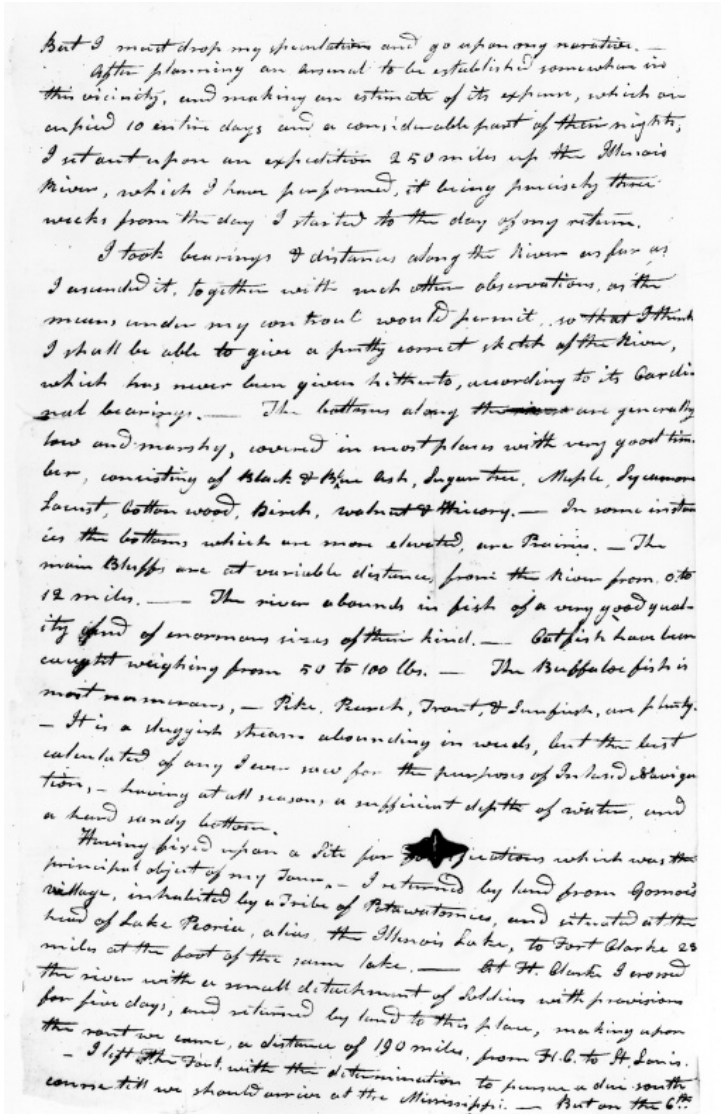 But I must drop my speculations and go upon my narative. —
After planning an Arsenal to be established somewhere in
this vicinity, and making an estimate of its expense, which oc
cupied 10 entire days and a considerable part of their nights,
I set out upon an expedition 250 miles up the Illinois
River, which I have performed, it being precisely three
weeks from the day I started to the day of my return.
I took bearings & distances along the River as far as
I ascended it, together with such other observations, as the
means under my controul would permit, so that I think
I shall be able to give a pretty correct sketch of the River,
which has never been given hitherto, according to its Cardi
nal bearings. — The bottoms along the river are generally
low and marshy, covered in most places with very good tim
ber, consisting of Black & Blue Ash, Sugar tree, Maple, Sycamore
Locust, Cotton wood, Birch, walnut & Hickory. — In some instan
ces the bottoms which are more elevated, are Prairies. — The
main Bluffs are at variable distances from the River from 0 to
12 miles. — The river abounds in fish of a very good qual-
ity and of enormous sizes of their kind. — Catfish have been
caught weighing from 50 to 100 lbs. — The Buffaloe fish is
most numerous, — Pike, Perch, Trout, & Sunfish, are plenty.
— It is a sluggish stream abounding in weeds, but the best
calculated of any I ever saw for the purposes of Inland Naviga
tion, — having at all seasons a sufficient depth of water, and
a hard sandy bottom.
Having fixed upon a Site for which was the
principal object of my Tour, — I returned by land from Gomo's
village, inhabited by a Tribe of Potawatomies, and situated at the
head of Lake Peoria, alias the Illinois Lake, to Fort Clarke 23
miles at the foot of the same lake. — At Ft. Clarke I crossed
the river with a small detachment of Soldiers with provisions
for five days, and returned by land to this place, making upon
the rout we came, a distance of 190 miles, from Ft. C. to St. Louis.
— I left the Fort, with the determination to pursue a due south
course till we should arrive at the Mississippi. — But on the 6th